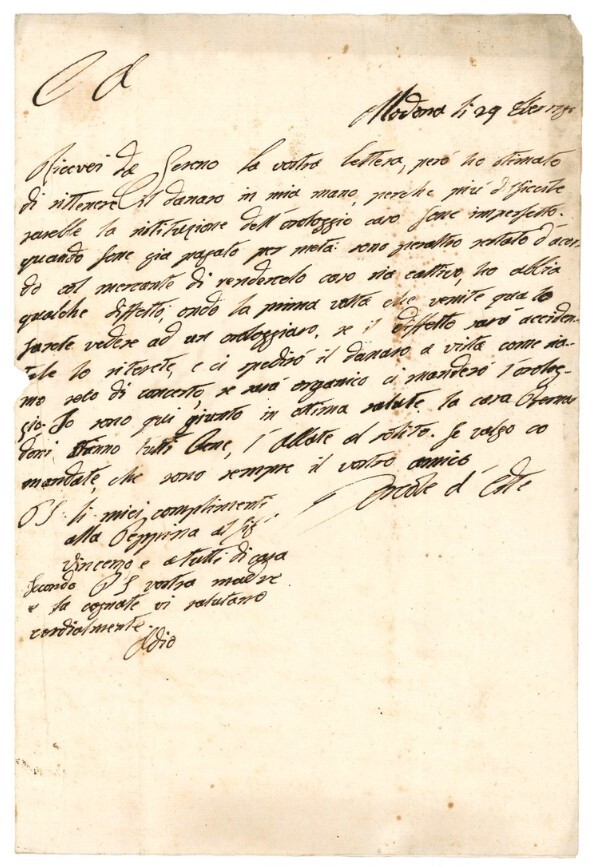 C A
Modena li 29
Ricevei da Sereno la vostra lettera, però ho stimato
di rittenere il danaro in mia mano, perche più difficile
sarebbe la ristituzione dell'orologgio caso fone imperfetto.
quando fone già pagato per metà: sono peraltro restato d'acor-
do col mercante di rendercelo caso sia cattivo, ho abbia
qualche diffetto, onde la prima volta che venite qua lo
farete vedere ad un orologgiaro, se il diffetto sarà acciden-
tale lo riterete, e ci spedirò il danaro a vista come sia-
mo solo di concerto, se sarà organico ci manderò l'orolog-
gio. Io sono qui giunto in ottima salute la cara
stanno tutti bene, l'Abbate al solito. Se valgo co
mandate, che sono sempre il vostro amico
Ercole d'Este
PS li miei complimenti
alla Peppina al Sig.r
Vincenzo e a tutti di casa
secondo PS vostra madre
e la cognate vi salutano
cordialmente.
Adio